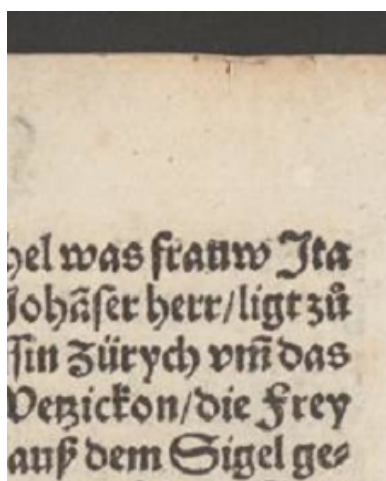 hel was frauw Ita
Johãſer herr/ligt zuͦ
ſin Zürych vm̃ das
Wetzickon/die Frey
auß dem Sigel ge⸗